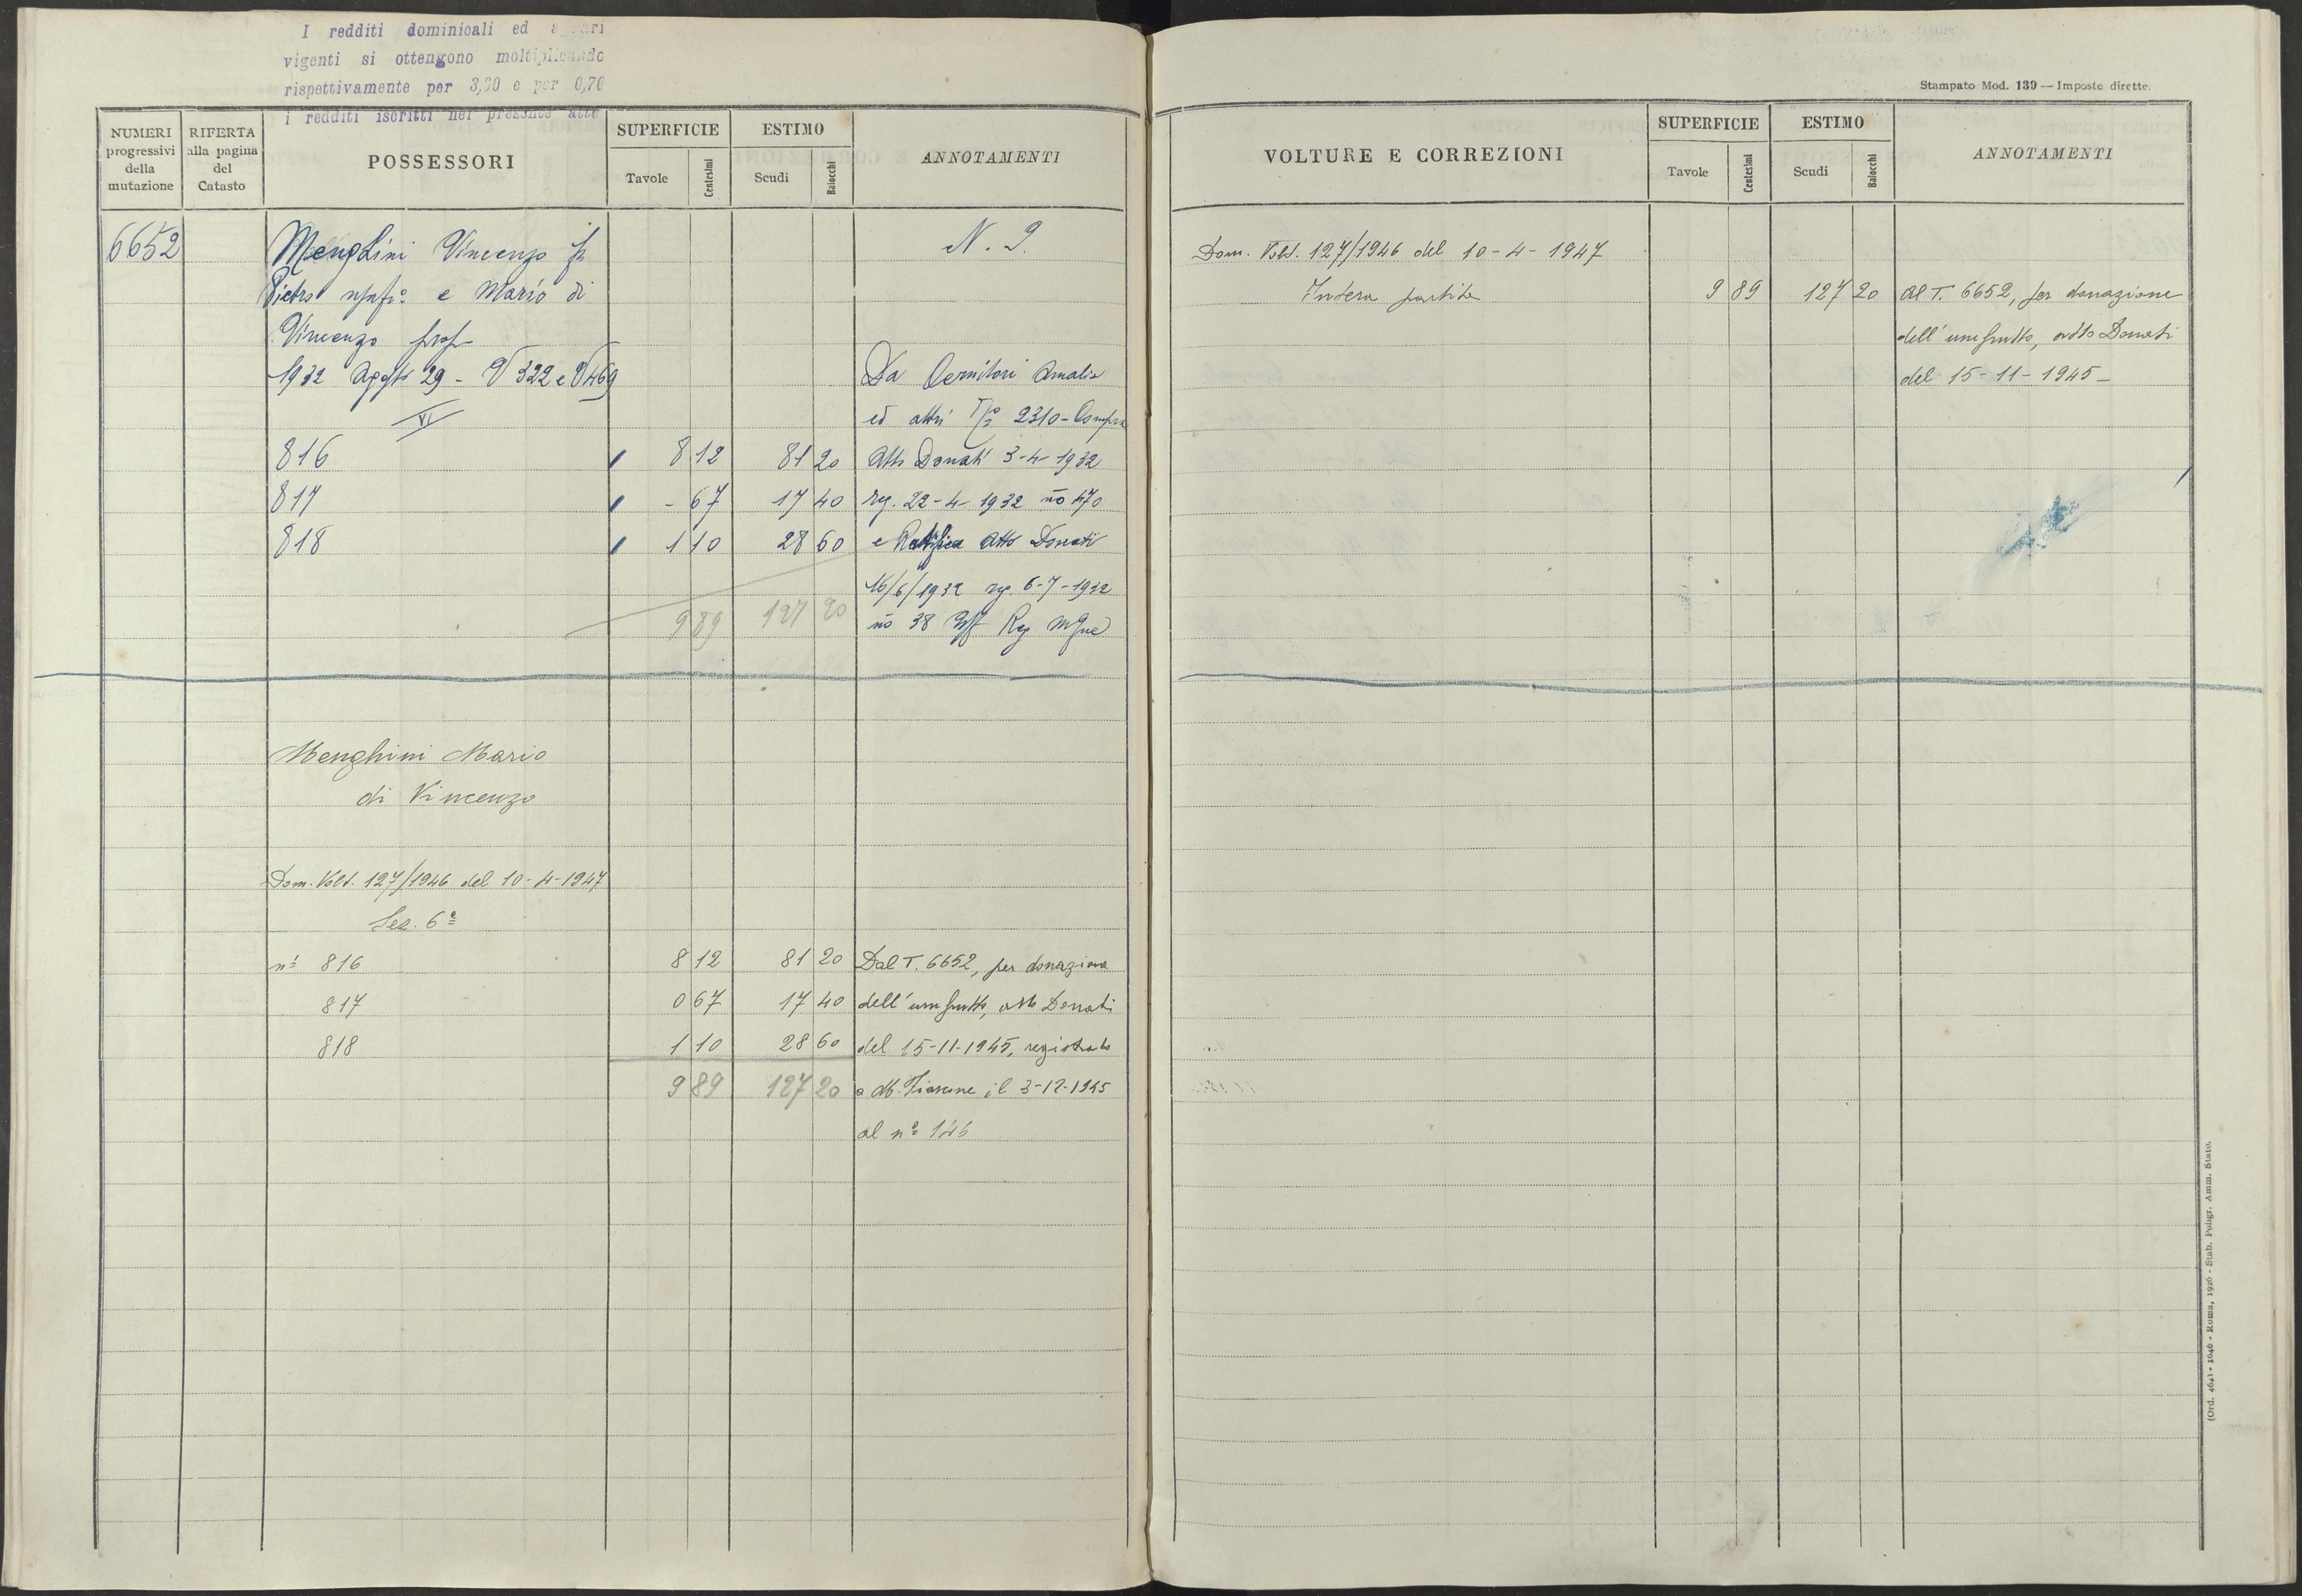 I redditi dominicali ed agrari
vigenti si ottengono moltiplicando
rispettivamente per 3,60 e per 0,70
i redditi iscritti nel presente atto
NUMERI progressivi della mutazione
RIFERTA alla pagina del Catasto
POSSESSORI
SUPERFICIE
Tavole Centesimi
ESTIMO
Scudi Baiocchi
ANNOTAMENTI
6652 Menghini Vincenzo fu N. 2.
Pietro usufr° e Mario di
Vincenzo prop
1932 Agosto 29 - V 322 e V 469 Da Cernitori Amalia
VI ed altri 2310 - Compra
816 8 12 81 20 Atto Donati 3-4-1932
817 - 67 17 40 reg. 22-4-1932 n° 470
818 1 10 28 60 e Ratifica Atto Donati
16/6/1932 reg. 6-7-1932
9 89 127 20 n° 38 Uff Reg
Menghini Mario
di Vincenzo
Dom. Volt. 127/1946 del 10-4-1947
Sez. 6ª
n° 816 8 12 81 20 Dal T. 6652, per donazione
817 0 67 17 40 dell'usufrutto, atto Donati
818 1 10 28 60 del 15-11-1945, registrato
9 89 127 20 a M. Fiascone il 3-12-1945
al n° 146
Stampato Mod. 139 — Imposte dirette.
VOLTURE E CORREZIONI
SUPERFICIE
Tavole Centesimi
ESTIMO
Scudi Baiocchi
ANNOTAMENTI
Dom. Volt. 127/1946 del 10-4-1947
Intera partita 9 89 127 20 Al T. 6652, per donazione
dell'usufrutto, atto Donati
del 15-11-1945 -
(Ord. 4641 - 1640 - Roma, 1926 - Stab. Poligr. Amm. Stato.